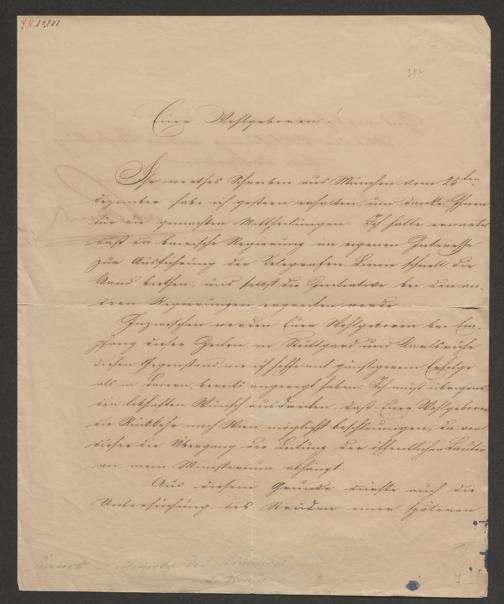 Euer Wohlgeboren!
Ihr werthes Schreiben aus München vom 25ten
Dezember habe ich gestern erhalten, und danke Ihnen
für die gemachten Mittheilungen. Ich hätte erwartet
daß die baierische Regierung im eigenen Interesse
zur Ausführung der Telegrafen Linien schnell die
Hand biethen, und selbst die Initiative bei den an-
dern Regierungen ergreifen werde.
Inzwischen werden Euer Wohlgeboren bei Em-
pfang dieser Zeilen in Stuttgard und Karlsruhe
diesen Gegenstand wie ich hoffe mit günstigerem Erfolge
als in Baiern, bereits angeregt haben. Ich muß übrigens
den lebhaften Wunsch ausdrücken, daß Euer Wohlgeboren
die Rückkehr nach Wien möglichst beschleunigen, da von
dieser die Übergang der Leitung der öffentlichen Bauten
an mein Ministerium abhängt.
Aus diesem Grunde dürfte auch die
Untersuchung des einer späteren